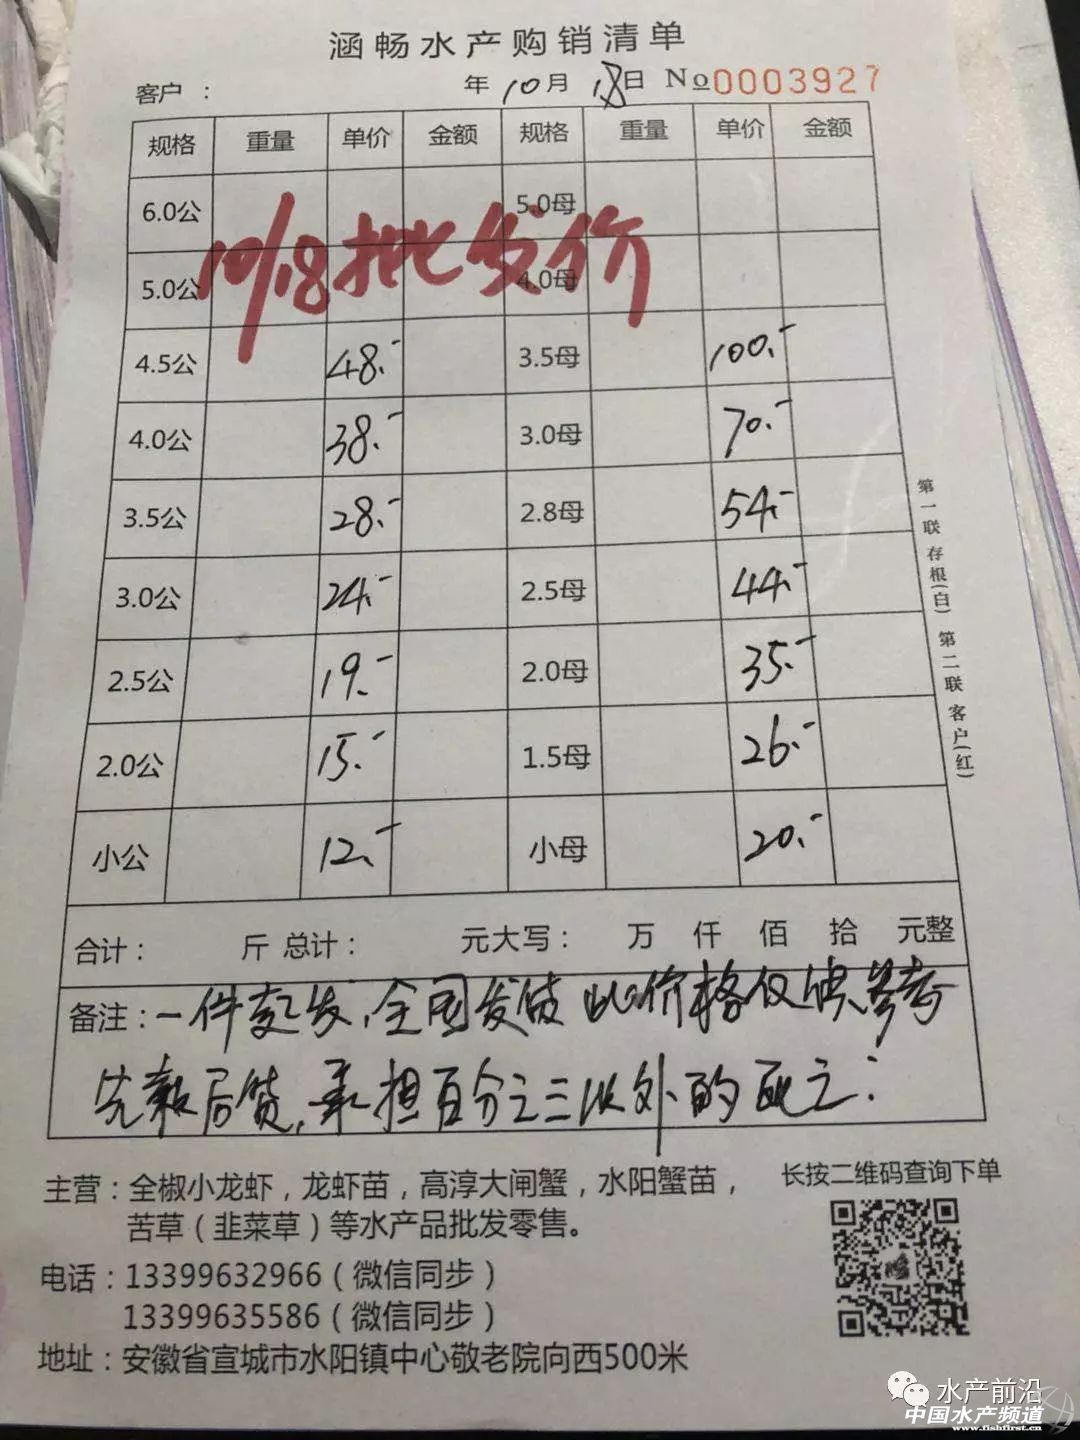 涵畅水产购销清单
客户： 年10月18日 No0003927
规格 重量 单价 金额 规格 重量 单价 金额
6.0公 5.0母
10/18批发价
5.0公 4.0母
4.5公 48.- 3.5母 100.-
4.0公 38.- 3.0母 70.-
3.5公 28.- 2.8母 54.-
3.0公 24.- 2.5母 44.-
2.5公 19.- 2.0母 35.-
2.0公 15.- 1.5母 26.-
小公 12.- 小母 20.-
合计： 斤 总计： 元大写： 万 仟 佰 拾 元整
备注：一件起发，全国发货 此价格仅供参考
先款后货，承担百分之三以外的死亡！
第一联 存根(白) 第二联 客户(红)
主营：全椒小龙虾，龙虾苗，高淳大闸蟹，水阳蟹苗，
苦草（韭菜草）等水产品批发零售。
长按二维码查询下单
电话：13399632966（微信同步）
13399635586（微信同步）
地址：安徽省宣城市水阳镇中心敬老院向西500米
水产前沿
中国水产频道
www.fishfirst.cn